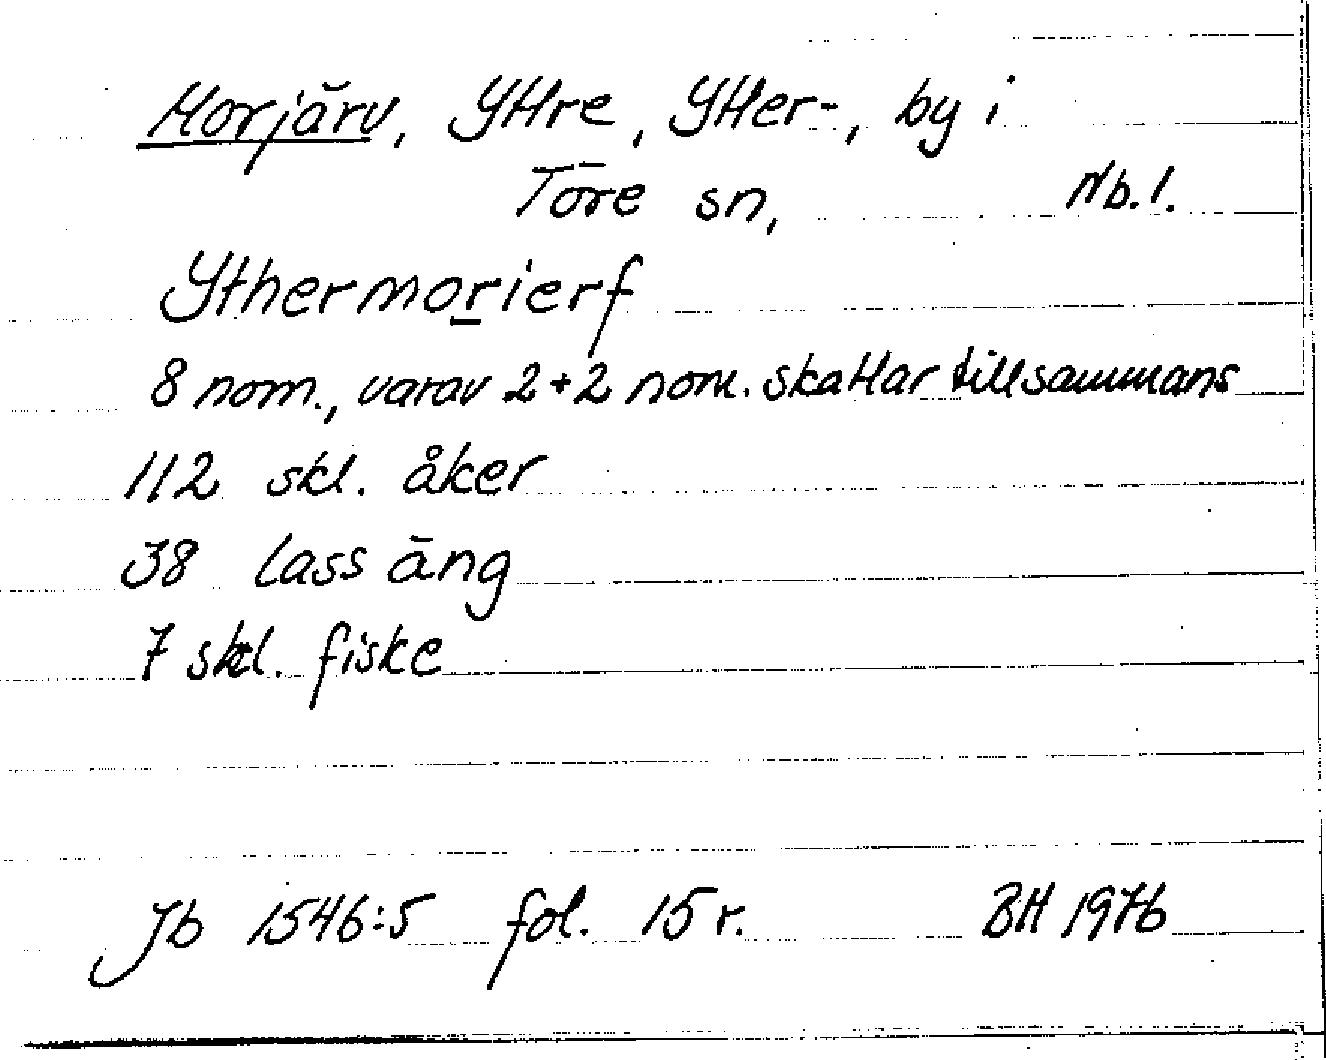 Morjärv, Yttre, Ytter-, by i
Töre sn, Nb.l.
Ythermorierf
8 nom., varav 2+2 nom. skattar tillsammans
112 skl. åker
38 lass äng
7 skl. fiske
Jb 1546:5 fol. 15 r. BH 1976